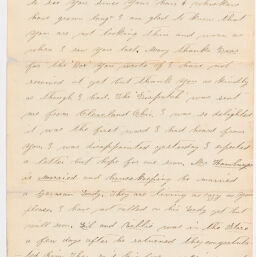 to see you since your hair & whiskers
have grown long. I am glad to know that
you are not looking thin and worn as
when I saw you last. Many thanks Dear
for the Box you wrote of I have not
received it yet but thank you as kindly
as though I had. The "Dispatch" was sent
me from Cleveland Ohio. I was so delighted
it was the first word I had heard from
You. I was disappointed yesterday I expected
a letter but hope for one soon. Mr.
is Married and House Keeping he married
a German Lady. They are living as cozy as you
please. I have not called on his Lady yet but
will soon. and was in the Store
a few days after he returned they congratula-